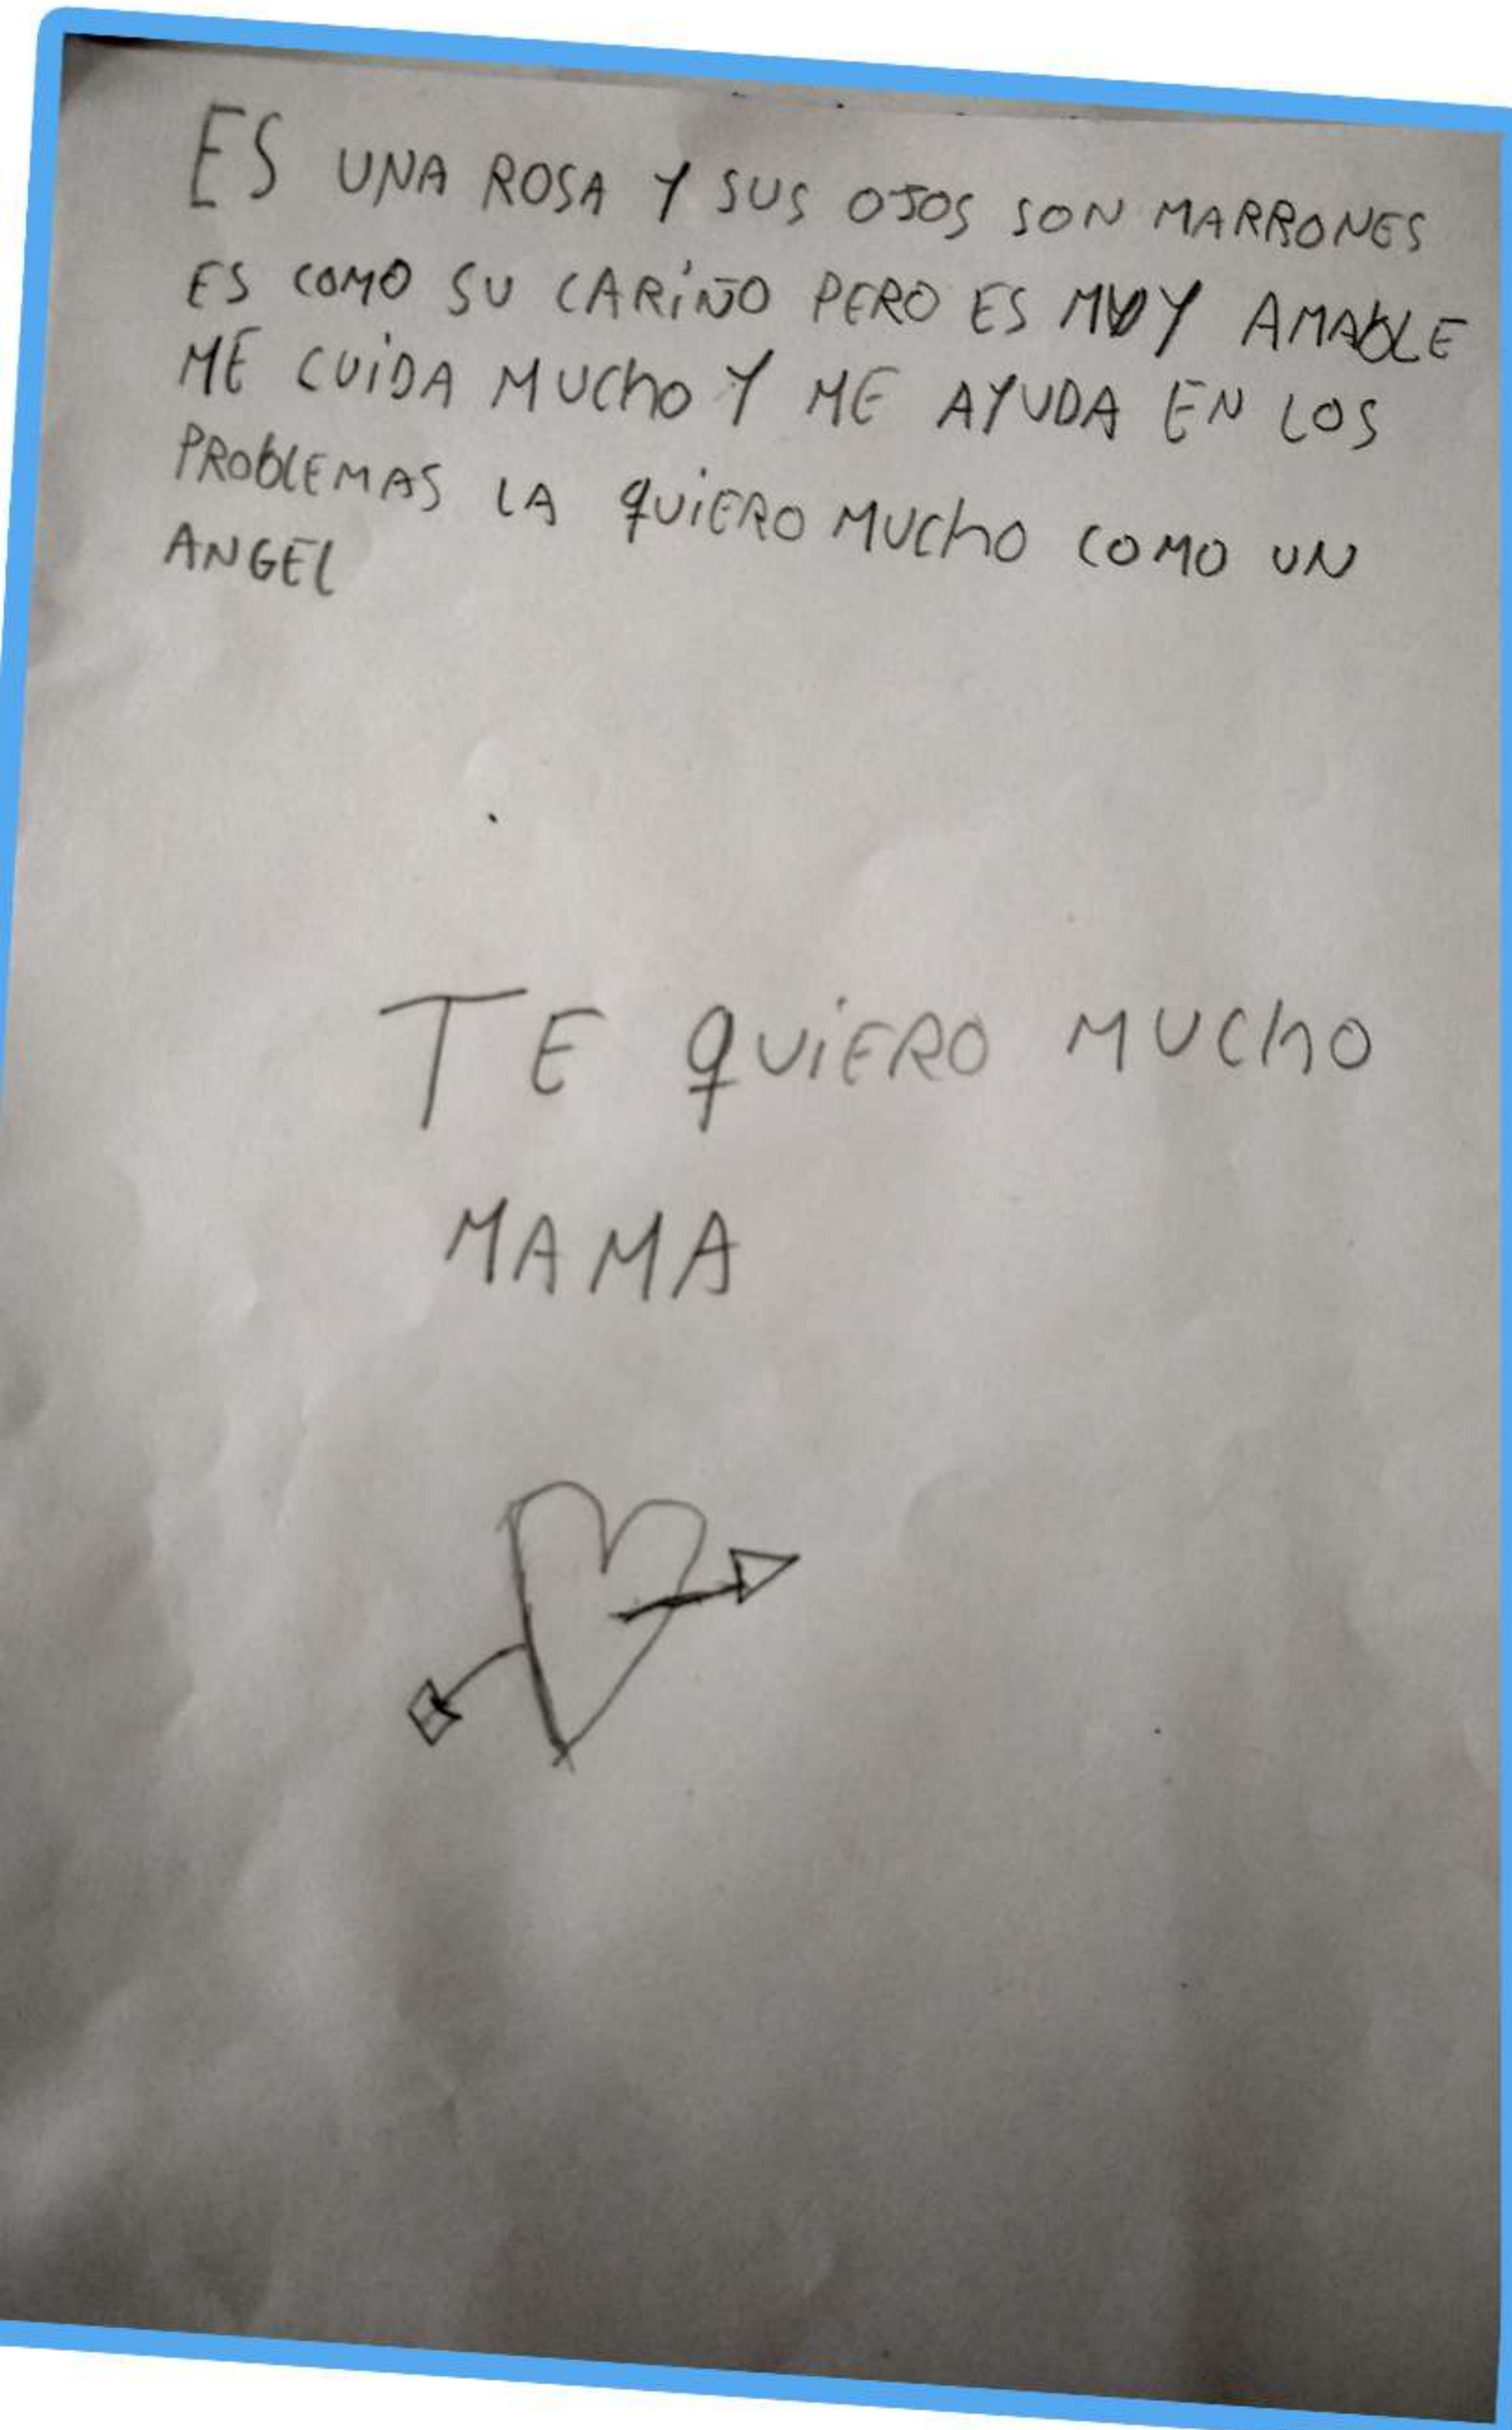 ES UNA ROSA Y SUS OJOS SON MARRONES
ES COMO SU CARIÑO PERO ES MUY AMAbLE
ME CUiDA MUChO Y ME AYUDA EN LOS
PRObLEMAS LA qUiERO MUChO COMO UN
ANGEL
TE qUiERO MUChO
MAMA